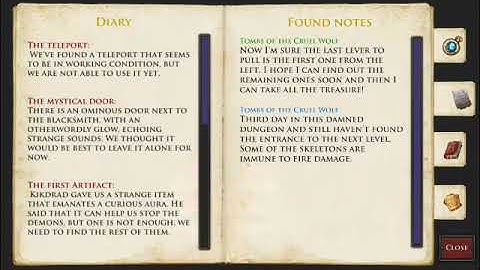 Diary
The teleport:
We've found a teleport that seems
to be in working condition, but
we are not able to use it yet.
The mystical door:
There is an ominous door next to
the blacksmith, with an
otherwordly glow, echoing
strange sounds. We thought it
would be best to leave it alone for
now.
The first Artifact:
Kikdrad gave us a strange item
that emanates a curious aura. He
said that it can help us stop the
demons, but one is not enough, we
need to find the rest of them.
Found notes
Tombs of the Cruel Wolf
Now I'm sure the last lever to
pull is the first one from the
left. I hope I can find out the
remaining ones soon and then I
can take all the treasure!
Tombs of the Cruel Wolf
Third day in this damned
dungeon and still haven't found
the entrance to the next level.
Some of the skeletons are
immune to fire damage.
Close